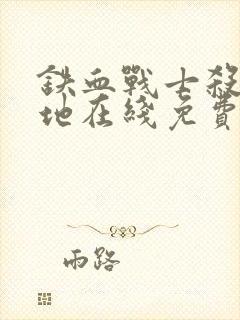 鉄血戰士殺
地在綫免費
雨路